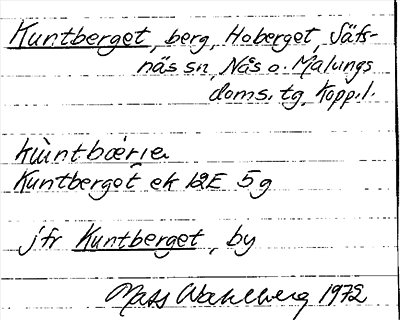 Kuntberget, berg, Hoberget, Säfs-
näs sn, Nås o. Malungs
doms. tg, Kopp.l.
kùntbær̀ıe
Kuntberget ek 12E 5g
jfr Kuntberget, by
Mats Wahlberg 1972